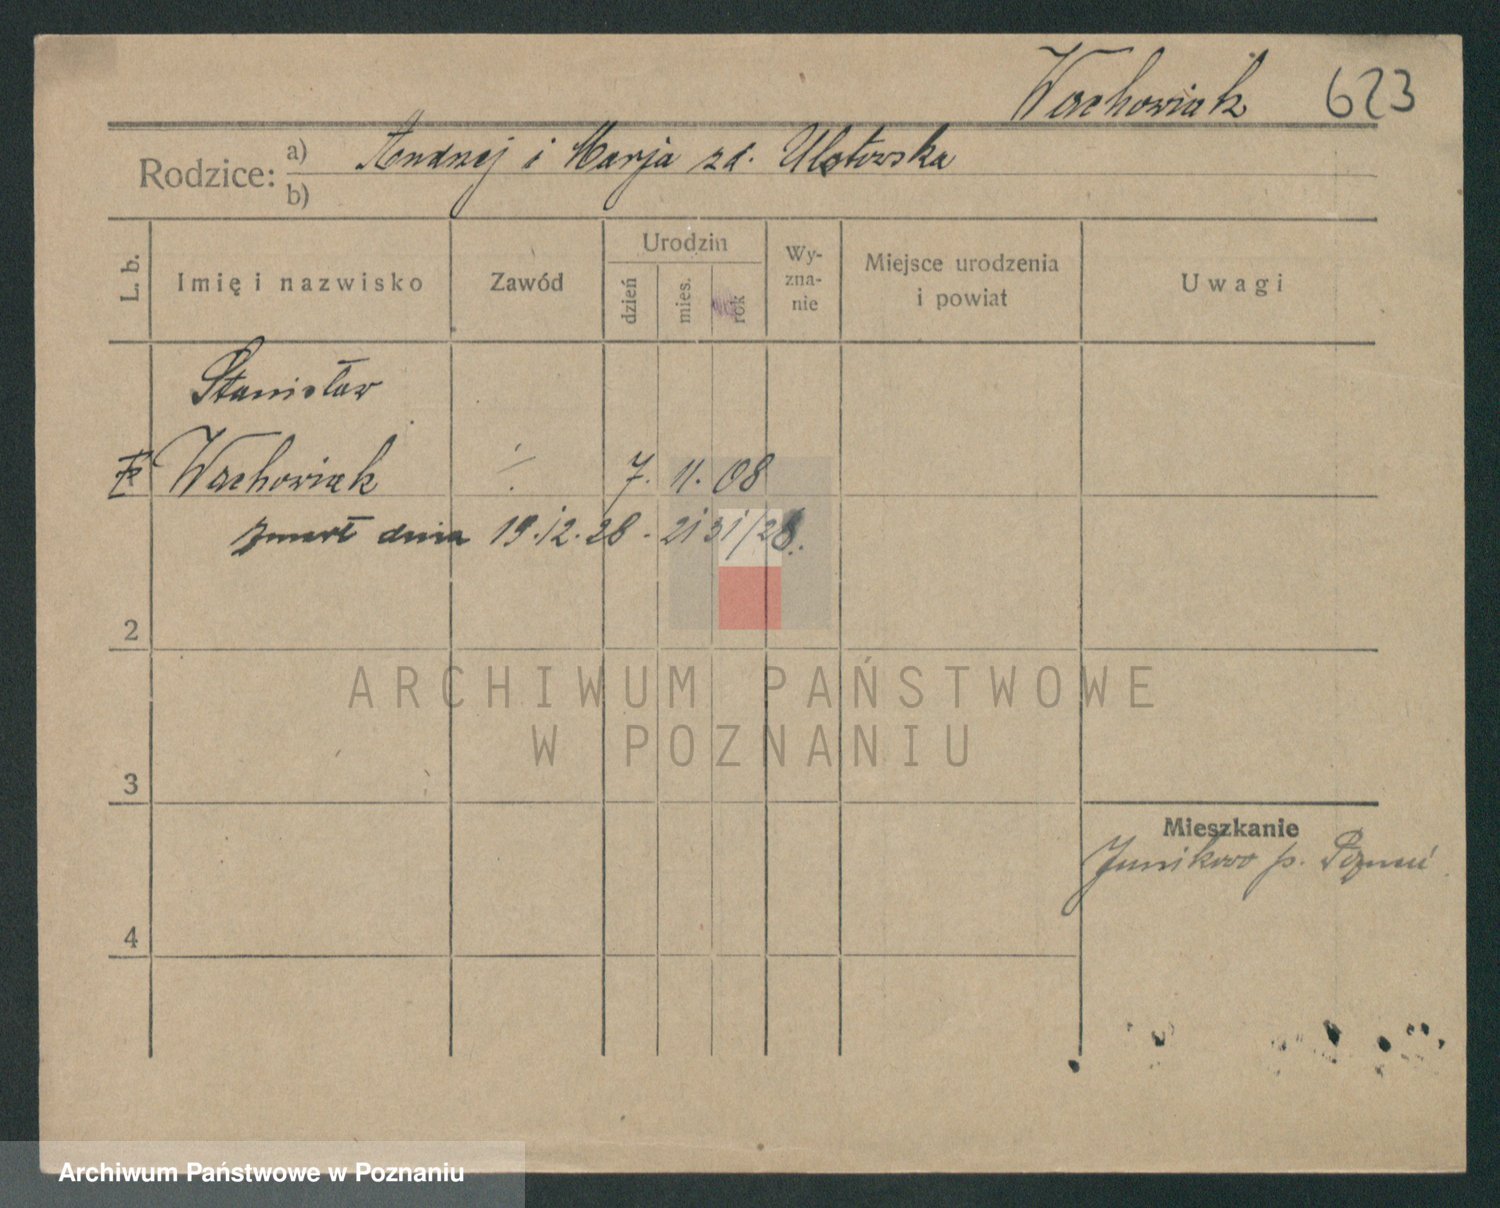 Wachowiak 623
Rodzice: a) Andrzej i Marja zd.
b)
L. b. Imię i nazwisko Zawód Urodzin dzień mies. rok Wy-zna-nie Miejsce urodzenia i powiat Uwagi
Stanisław
Wachowiak 7. 11. 08
zmarł dnia 19.12.28 -
2
ARCHIWUM PAŃSTWOWE
W POZNANIU
3
Mieszkanie
Junikowo p. Poznań
4
Archiwum Państwowe w Poznaniu